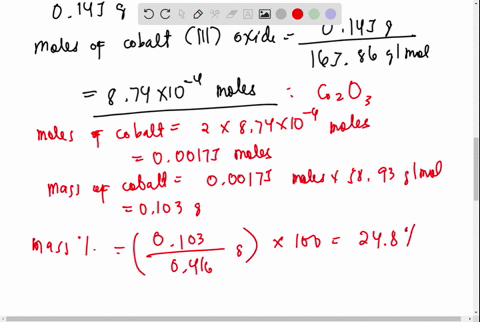 0.145 g
moles of cobalt (III) oxide = 0.145 g / 165.86 g/mol
= 8.74 × 10⁻⁴ moles : Co₂O₃
moles of cobalt = 2 × 8.74 × 10⁻⁴ moles
= 0.00175 moles
mass of cobalt = 0.00175 moles × 58.93 g/mol
= 0.103 g
mass % = (0.103 / 0.416 g) × 100 = 24.8 %